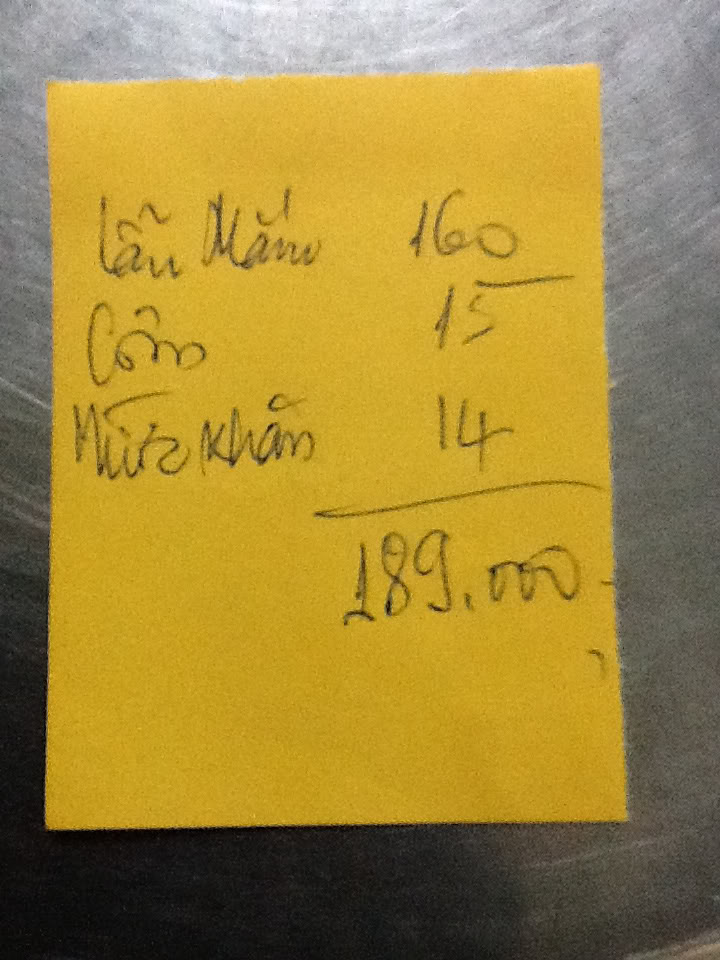 Lẩu Mắm 160
Cơm 15
Nước Khăn 14
189.000